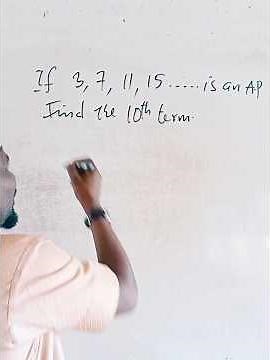 If 3, 7, 11, 15 ..... is an AP
Find the 10th term.